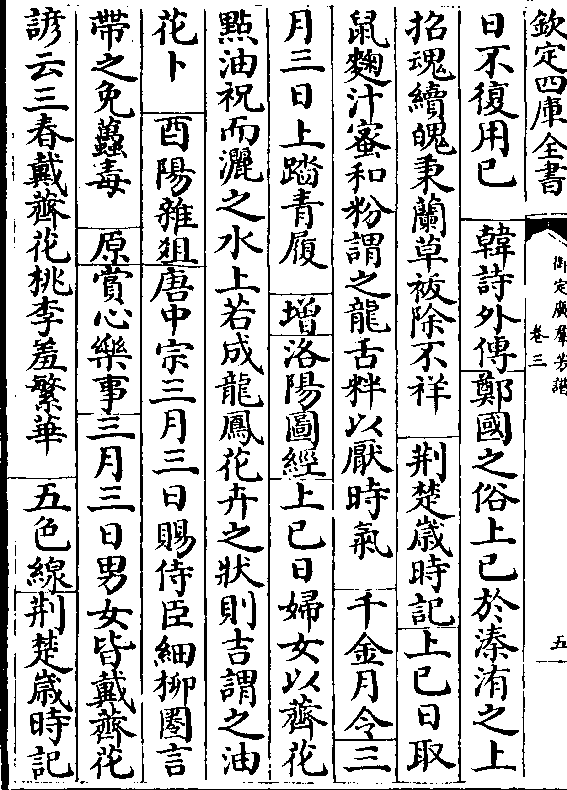 欽定四庫全書
御定廣羣芳譜
卷三
五
日不復用巳 韓詩外傳鄭國之俗上巳於溱洧之上
招魂續魄秉蘭草祓除不祥 荆楚歲時記上巳日取
鼠麴汁蜜和粉謂之龍舌䉽以厭時氣 千金月令三
月三日上踏青履 增洛陽圖經上巳日婦女以薺花
點油祝而灑之水上若成龍鳳花卉之狀則吉謂之油
花卜 酉陽雜俎唐中宗三月三日賜侍臣細柳圏言
帶之免蠆毒 原賞心樂事三月三日男女皆戴薺花
諺云三春戴薺花桃李羞繁華 五色線荆楚歲時記